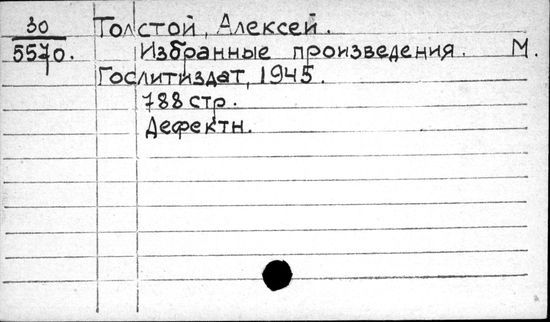 30 Толстой, Алексей.
5570. Избранные произведения. М.
Гослитиздат, 1945.
788 стр.
Дефектн.